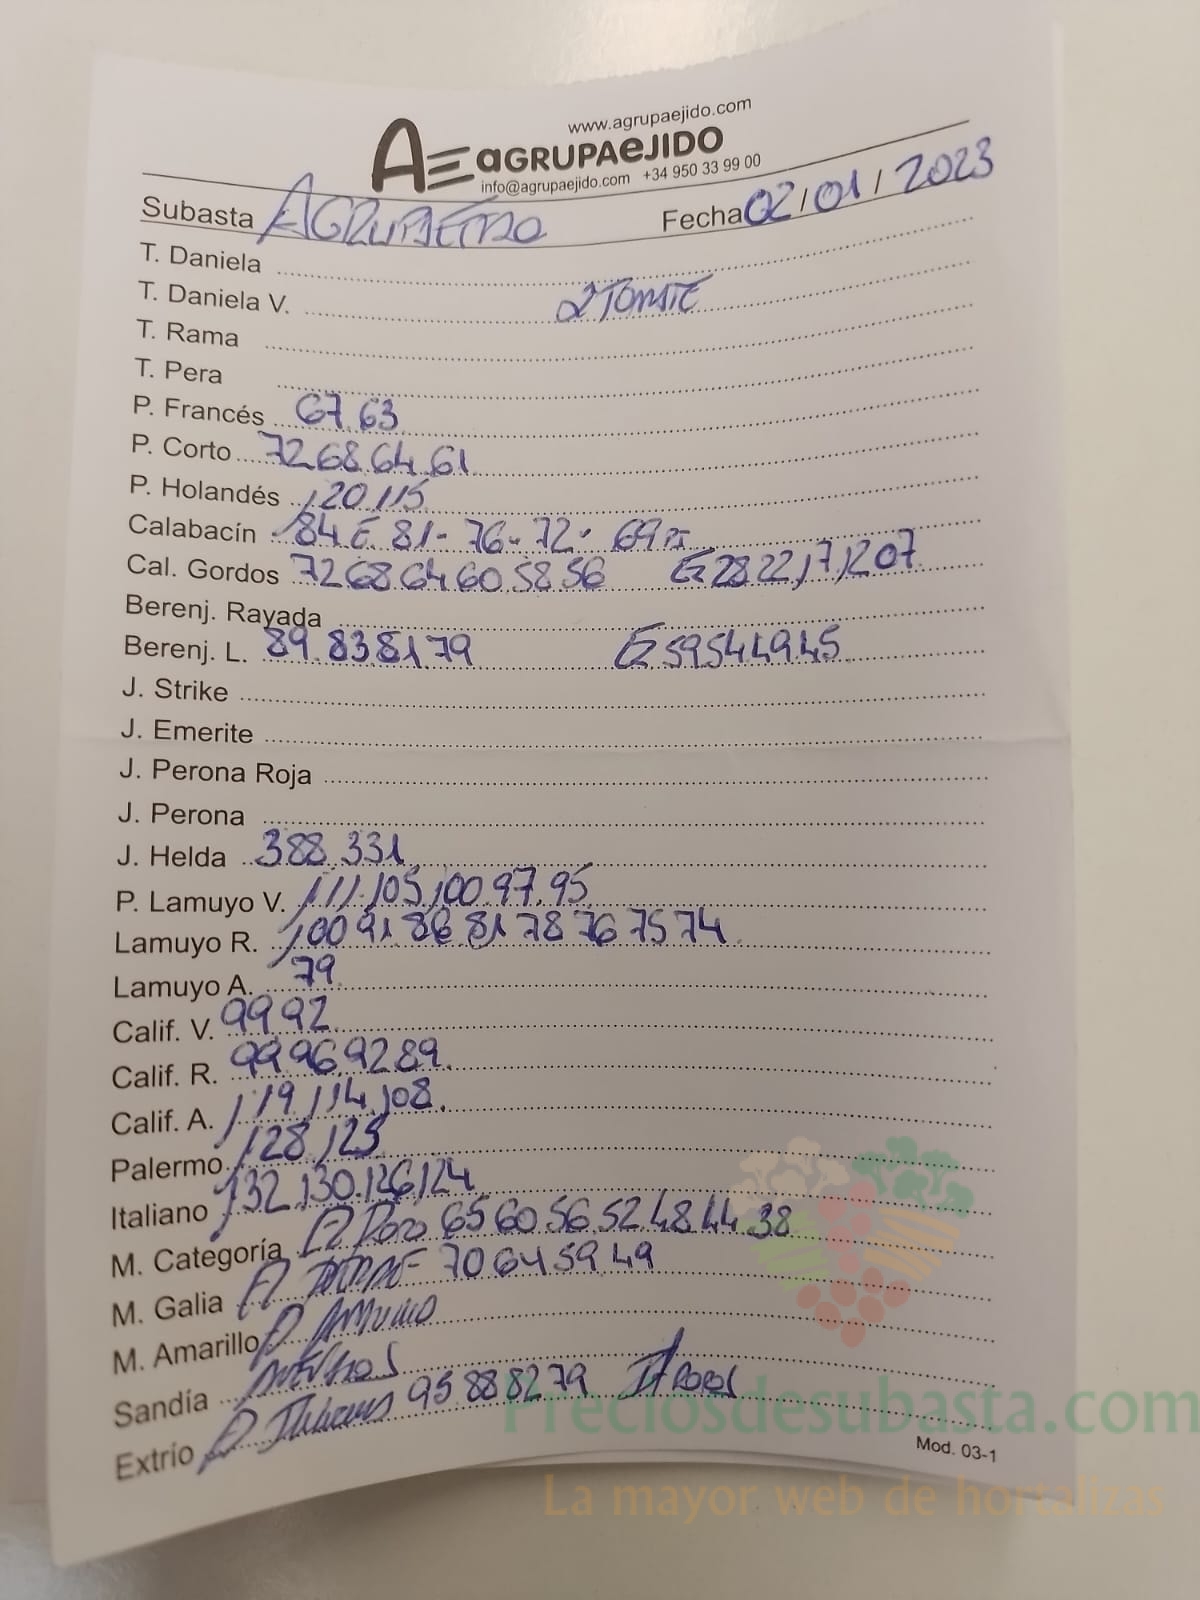 www.agrupaejido.com
AE aGRUPAeJIDO
info@agrupaejido.com +34 950 33 99 00
Subasta AGRUPAEJIDO Fecha 02/01/2023
T. Daniela
T. Daniela V. TOMATE
T. Rama
T. Pera
P. Francés 67.63
P. Corto 72.68.64.61
P. Holandés 120.115
Calabacín 184 E. 81-76-72-69
Cal. Gordos 72.68.64.60.58.56 28 22 17 12 07
Berenj. Rayada
Berenj. L. 89.83 81.79 59 54 49 45
J. Strike
J. Emerite
J. Perona Roja
J. Perona
J. Helda 388.331
P. Lamuyo V. 111.105.100.97.95
Lamuyo R. 100 91 86 81 78 76 75 74
Lamuyo A. 79
Calif. V. 99 92
Calif. R. 99 96.92 89.
Calif. A. 119.114.108.
Palermo 128.125
Italiano 132.130.126.124
M. Categoría 65 60 56 52 48 44 38
M. Galia 70 64 59 49
M. Amarillo
Sandía
Extrío 95 88 82 79
Mod. 03-1
Preciosdesubasta.com
La mayor web de hortalizas